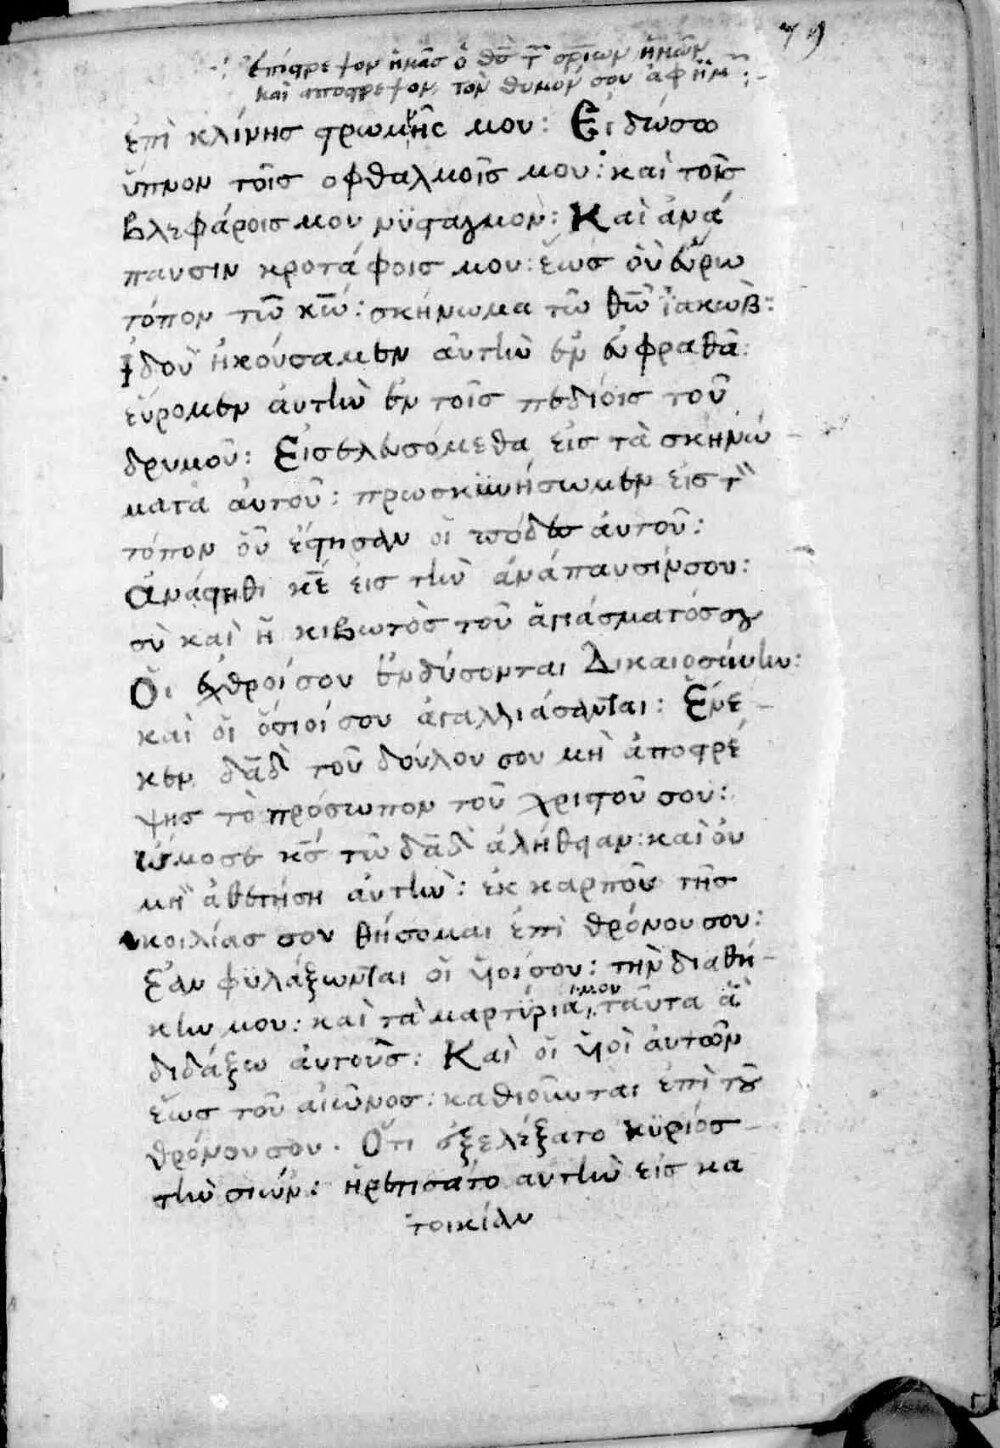 79
ἐπίστρεψον ἡμᾶς ὁ θς τῶν σριων ἡμῶν
καὶ αποστρεψον τὸν θυμόν σου ἀφ ἡμ :-
ἐπὶ κλίνης στρωμνῆς μου : Εἰ δώσω
ὕπνον τοῖς οφθαλμοῖς μου : καὶ τοῖς
βλεφάροις μου νϋσταγμὸν : Καὶ ἀνά
παυσιν κροτάφοις μου : ἕως οὗ εὕρω
τόπον τῶ κῶ : σκήνωμα τῶ θῶ ἰακώβ :
Ἰδοὺ ἠκούσαμεν ἀυτὴν ἐν εὐφραθᾶ :
εὕρομεν ἀυτὴν ἐν τοῖς πεδίοις τοῦ
δρυμοῦ : Εἰσελευσόμεθα εἰς τὰ σκηνώ
ματα ἀυτοῦ : πρωσκϋνήσωμεν εἰς τὸν
τόπον οὗ ἔστησαν οἱ πόδες ἀυτοῦ :
Ἀνάστηθι κε εἰς τὴν ἀνάπαυσίν σου :
σὺ καὶ ἡ κιβωτὸς τοῦ ἁγιάσματός σου
Οἱ ἱερεῖς σου ἐνδύσονται Δικαιοσύνην :
καὶ οἱ ὅσιοί σου ἀγαλλιάσονται : Ἕνε
κεν δᾱδ τοῦ δούλου σου μὴ ἀποστρέ
ψης τὸ πρόσωπον τοῦ χριστοῦ σου :
Ὤμοσε κς τῶ δᾱδ ἀλήθειαν : καὶ ὀυ
μὴ ἀθετήση ἀυτὴν : ἐκ καρποῦ τῆς
κοιλίας σου θήσομαι ἐπὶ θρόνου σου :
Ἐὰν φϋλάξωνται οἱ ὑιοί σου : τὴν διαθή
κην μου : καὶ τὰ μαρτύρια μου ταῦτα ἃ
διδάξω ἀυτοὺς : Καὶ οἱ ὑιοὶ ἀυτῶν
ἕως τοῦ αἰῶνος : καθιοῦνται ἐπὶ τοῦ
θρόνου σου . Ὅτι ἐξελέξατο κύριος
τὴν σιών : ἡρετίσατο αυτὴν εἰς κα
τοικίαν